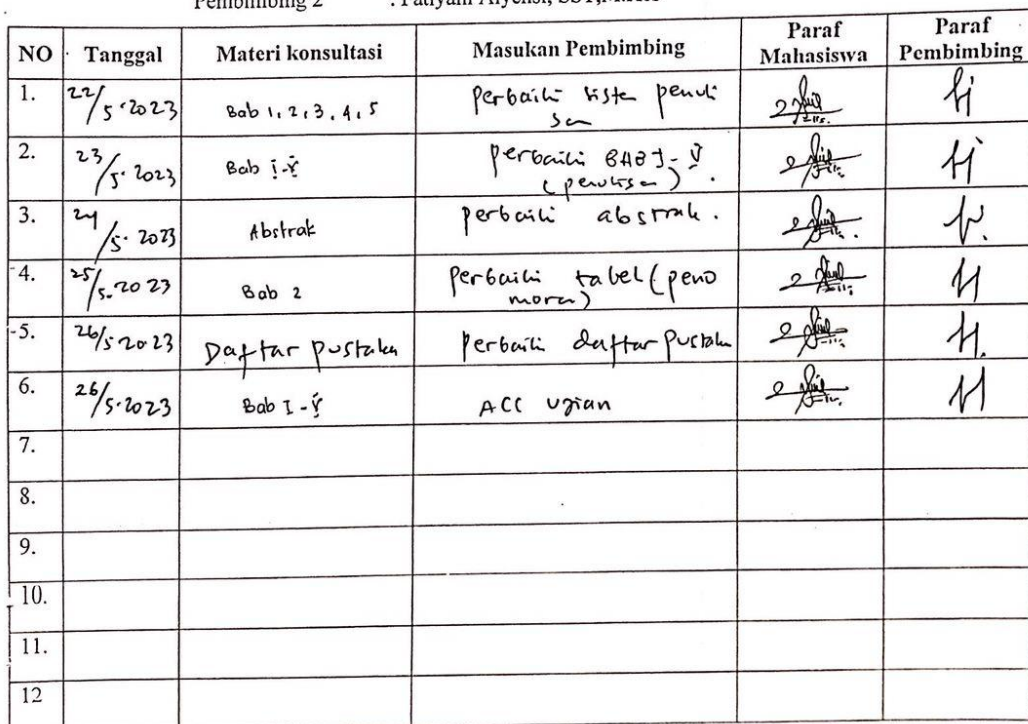 Pembimbing 2 : Fatiyani Alyensi, SST,M.Kes
NO Tanggal Materi konsultasi Masukan Pembimbing Paraf Mahasiswa Paraf Pembimbing
1. 22/5-2023 Bab 1, 2, 3, 4, 5 perbaiki siste penuli
san
2. 23/5-2023 Bab I-V perbaiki BAB I-V
(penulisan).
3. 24/5-2023 Abstrak perbaiki abstrak.
4. 25/5-2023 Bab 2 Perbaiki tabel (peno
moran)
5. 26/5 2023 Daftar pustaka perbaiki daftar pustaka
6. 26/5-2023 Bab I-V ACC Ujian
7.
8.
9.
10.
11.
12